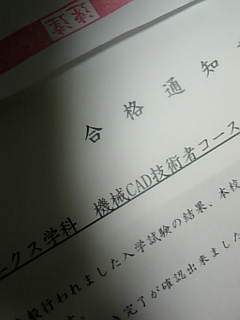 合格通知
ニクス学科 機械CAD技術者コース
行われました入学試験の結果、本校
完了が確認出来ました